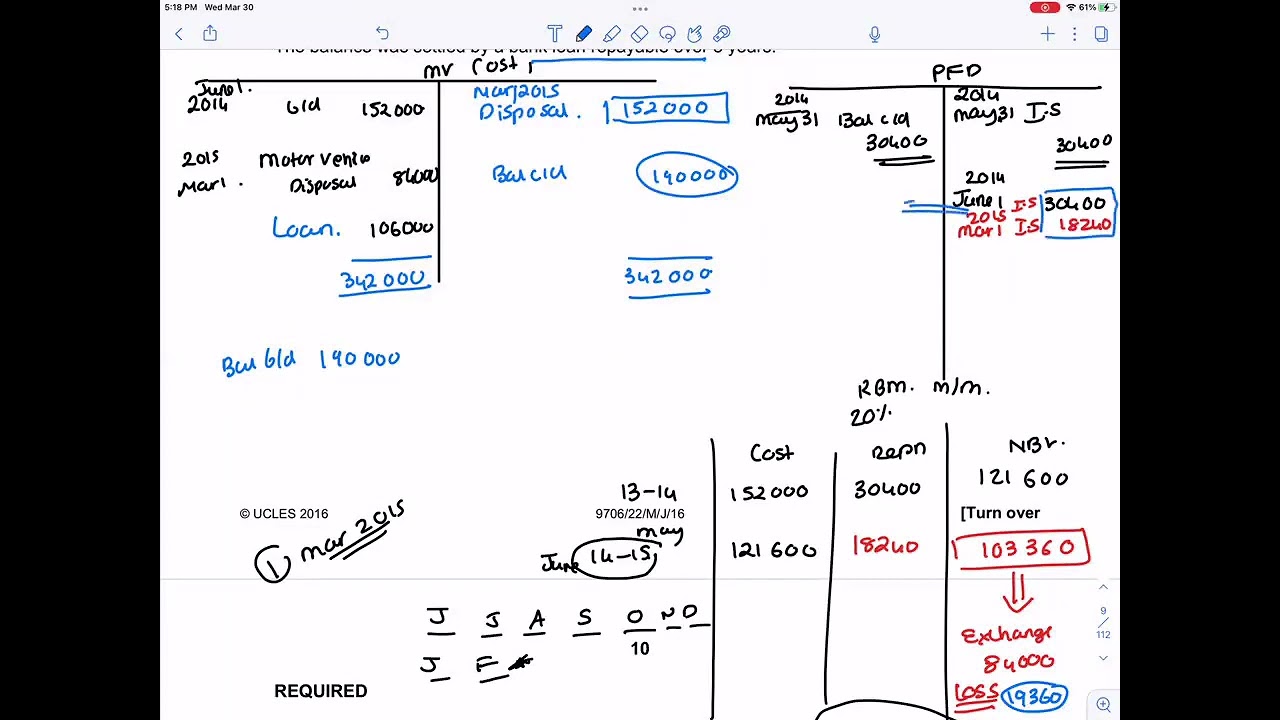 5:18 PM Wed Mar 30
61%
The balance was settled by a bank loan repayable over 5 years.
mv Cost
June 1.
2014 b/d 152000
Mar 1 2015
Disposal. 152000
2015
Mar 1. Motor vehicle
Disposal 84000
Bal c/d 190000
Loan. 106000
342000 342000
Bal b/d 190 000
PFD
2014
may 31 Bal c/d
30400
2014
may 31 I.S
30400
2014
June 1 I.S 30400
2015
mar 1 I.S 18240
RBM. m/m.
20%
Cost Depn NBV.
13-14 152000 30400 121 600
© UCLES 2016 9706/22/M/J/16 [Turn over
1 mar 2015
may
June 14-15 121 600 18240 103 360
J J A S O N D
10
J F
Exchange
84000
LOSS 19360
REQUIRED
9
112